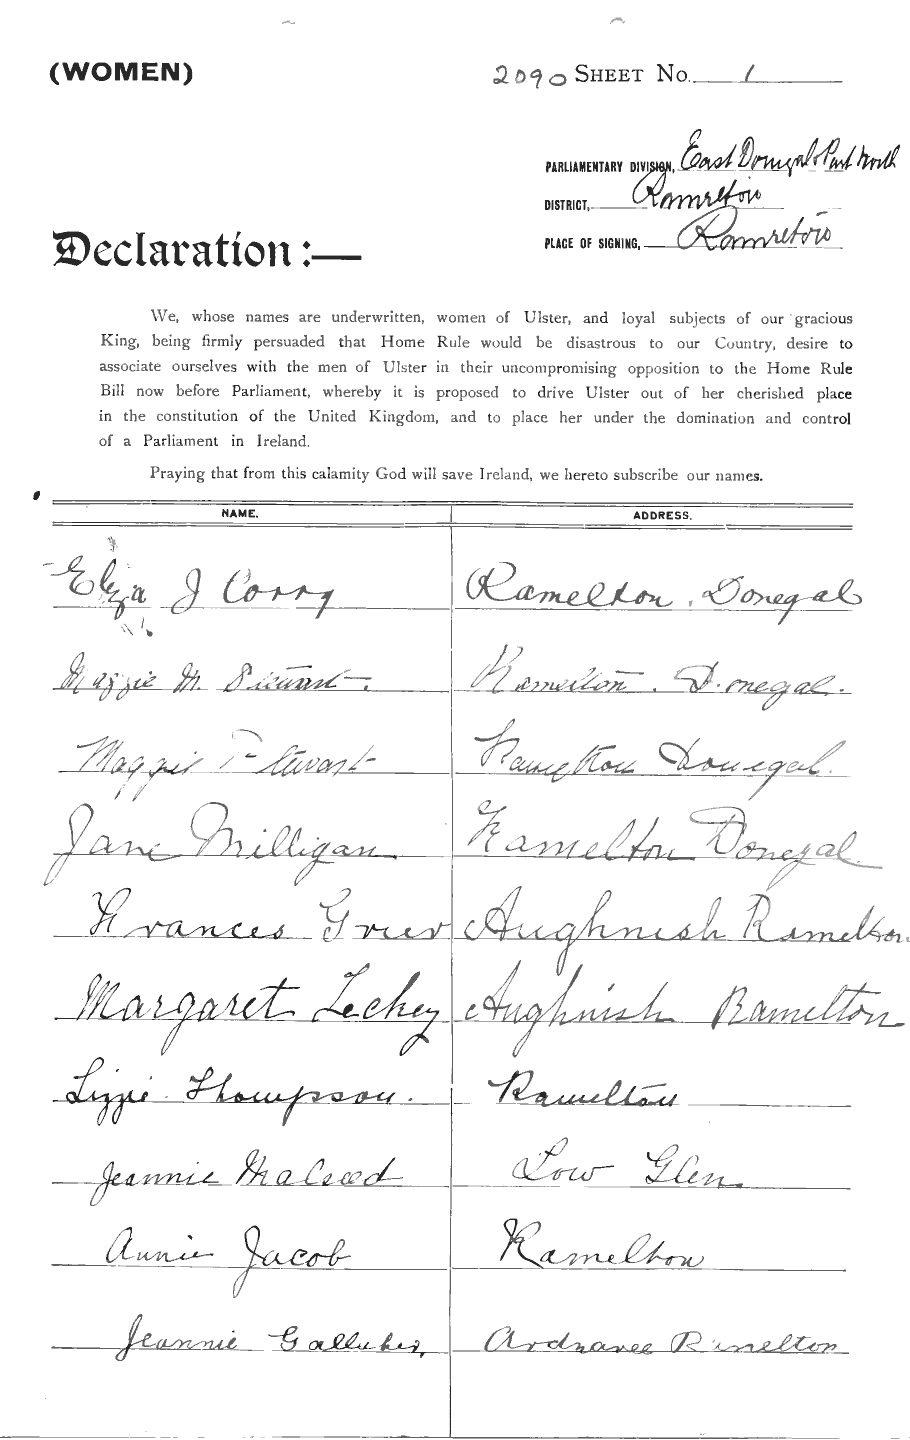 (WOMEN)
2090 SHEET No. 1
PARLIAMENTARY DIVISION, East Donegal & Part North
DISTRICT, Ramelton
PLACE OF SIGNING, Ramelton
Declaration :—
We, whose names are underwritten, women of Ulster, and loyal subjects of our gracious
King, being firmly persuaded that Home Rule would be disastrous to our Country, desire to
associate ourselves with the men of Ulster in their uncompromising opposition to the Home Rule
Bill now before Parliament, whereby it is proposed to drive Ulster out of her cherished place
in the constitution of the United Kingdom, and to place her under the domination and control
of a Parliament in Ireland.
Praying that from this calamity God will save Ireland, we hereto subscribe our names.
NAME. ADDRESS.
Eliza J Corry Ramelton, Donegal
Maggie M. Stewart. Ramelton. Donegal.
Maggie Stewart Ramelton Donegal.
Jane Milligan Ramelton Donegal.
Frances Grier Aughnish Ramelton.
Margaret Leckey Aughnish Ramelton
Lizzie Thompson. Ramelton
Jeannie Malseed Low Glen
Annie Jacob Ramelton
Jeannie Gallagher, Ardnaree Ramelton